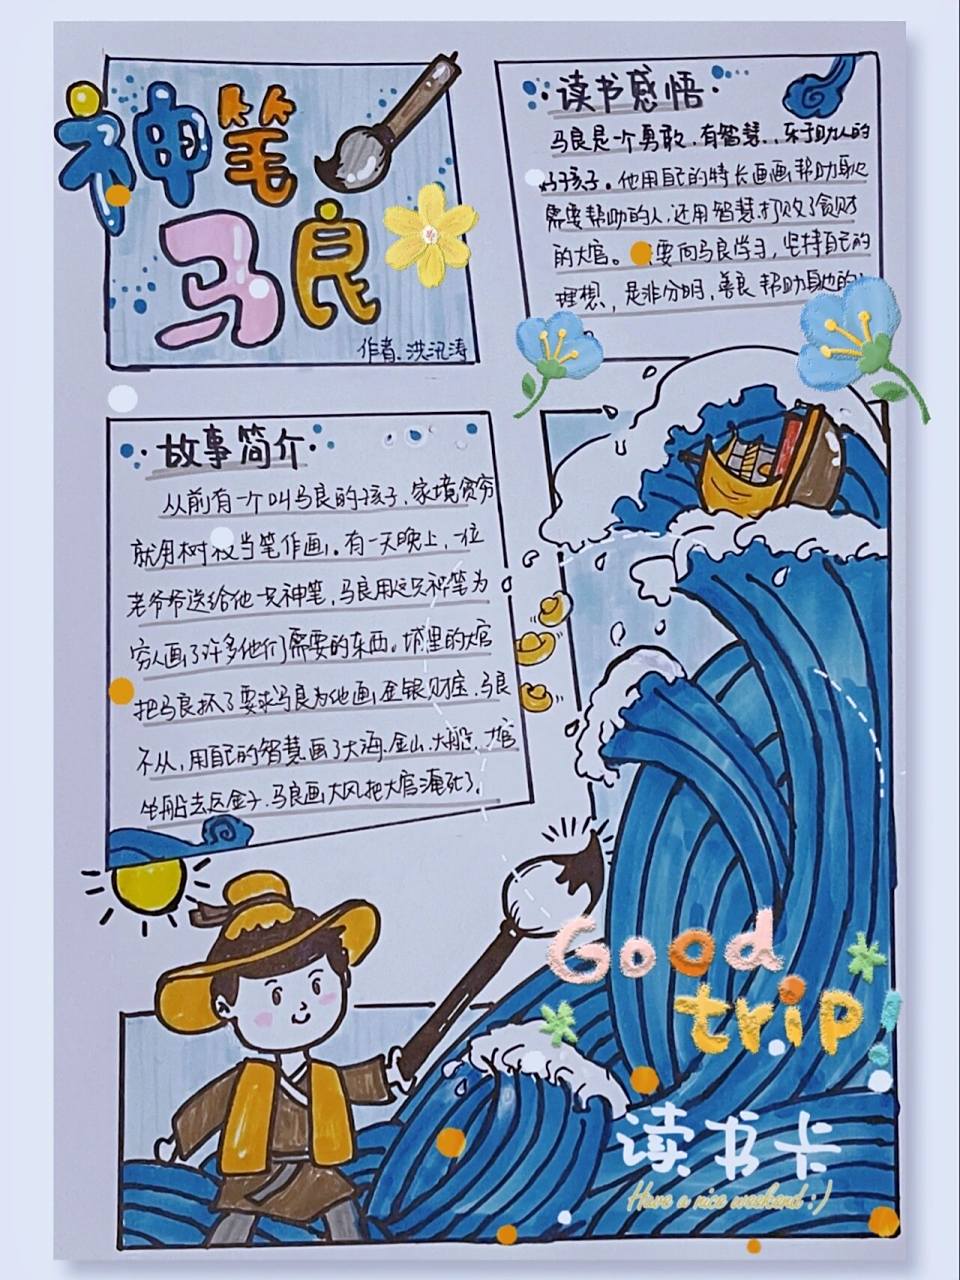 神笔
马良
作者.洪汛涛
读书感悟
马良是一个勇敢.有智慧..乐于助人的
好孩子。他用自己的特长画画帮助身边
需要帮助的人,还用智慧打败了贪财
的大官。要向马良学习,坚持自己的
理想,是非分明,善良帮助身边的
故事简介
从前有一个叫马良的孩子.家境贫穷
就用树杈当笔作画。有一天晚上,一位
老爷爷送给他一只神笔,马良用这只神笔为
穷人画了许多他们需要的东西。城里的大官
把马良抓了要求马良为他画金银财宝,马良
不从,用自己的智慧画了大海.金山.大船.大官
坐船去运金子.马良画大风把大官淹死了。
Good
trip!
读书卡
Have a nice weekend :)